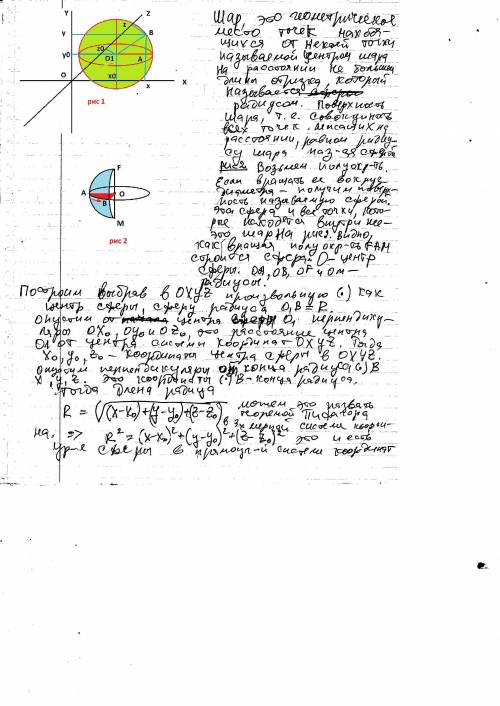 Y
Z
z
Y
B
y0
z0
O1
A
O
x0
x
X
рис 1
F
A
O
B
M
рис 2
Шар это геометрическое
место точек находя-
щихся от некой точки
называемой центром шара
на расстоянии не больше
длины отрезка, который
называется
радиусом. Поверхность
шара, т.е. совокупность
всех точек лежащих на
расстоянии, равном радиу-
су шара наз-ая сфера
Возьмем полуокр-ть.
Если вращать ее вокруг
диаметра - получим поверх-
ность называемую сферой.
Эта сфера и все точки, кото-
рые находятся внутри нее -
это шар. На рис 2. видно,
как вращая полуокр-ть FAM
строится сфера. O - центр
сферы. OA, OB, OF и OM -
радиусы.
Построим выбрав в OXYZ произвольную (.) как
центр сферы, сферу радиуса O₁B = R.
Опустим от центра O₁ перпендику-
ляры OX₀, OY₀ и OZ₀, это расстояние центра
O₁ от центра системы координат OXYZ. Тогда
x₀, y₀, z₀ - координаты центра сферы в OXYZ.
Опустим перпендикуляры от конца радиуса (.) B
x, y, z. это координаты (.) B - конца радиуса.
Тогда длена радиуса
R = √((x-x₀)+(y-y₀)+(z-z₀) можем это назвать
теоремой Пифагора
в 3х мерной системе коорди-
нат, => R² = (x-x₀)²+(y-y₀)²+(z-z₀)² это и есть
ур-е сферы в прямоуг-й системе координат